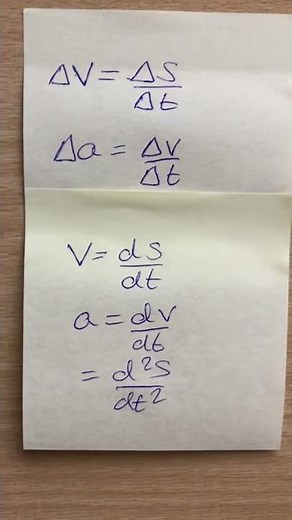 ΔV = ΔS/Δt
Δa = Δv/Δt
V = ds/dt
a = dv/dt
= d²s/dt²